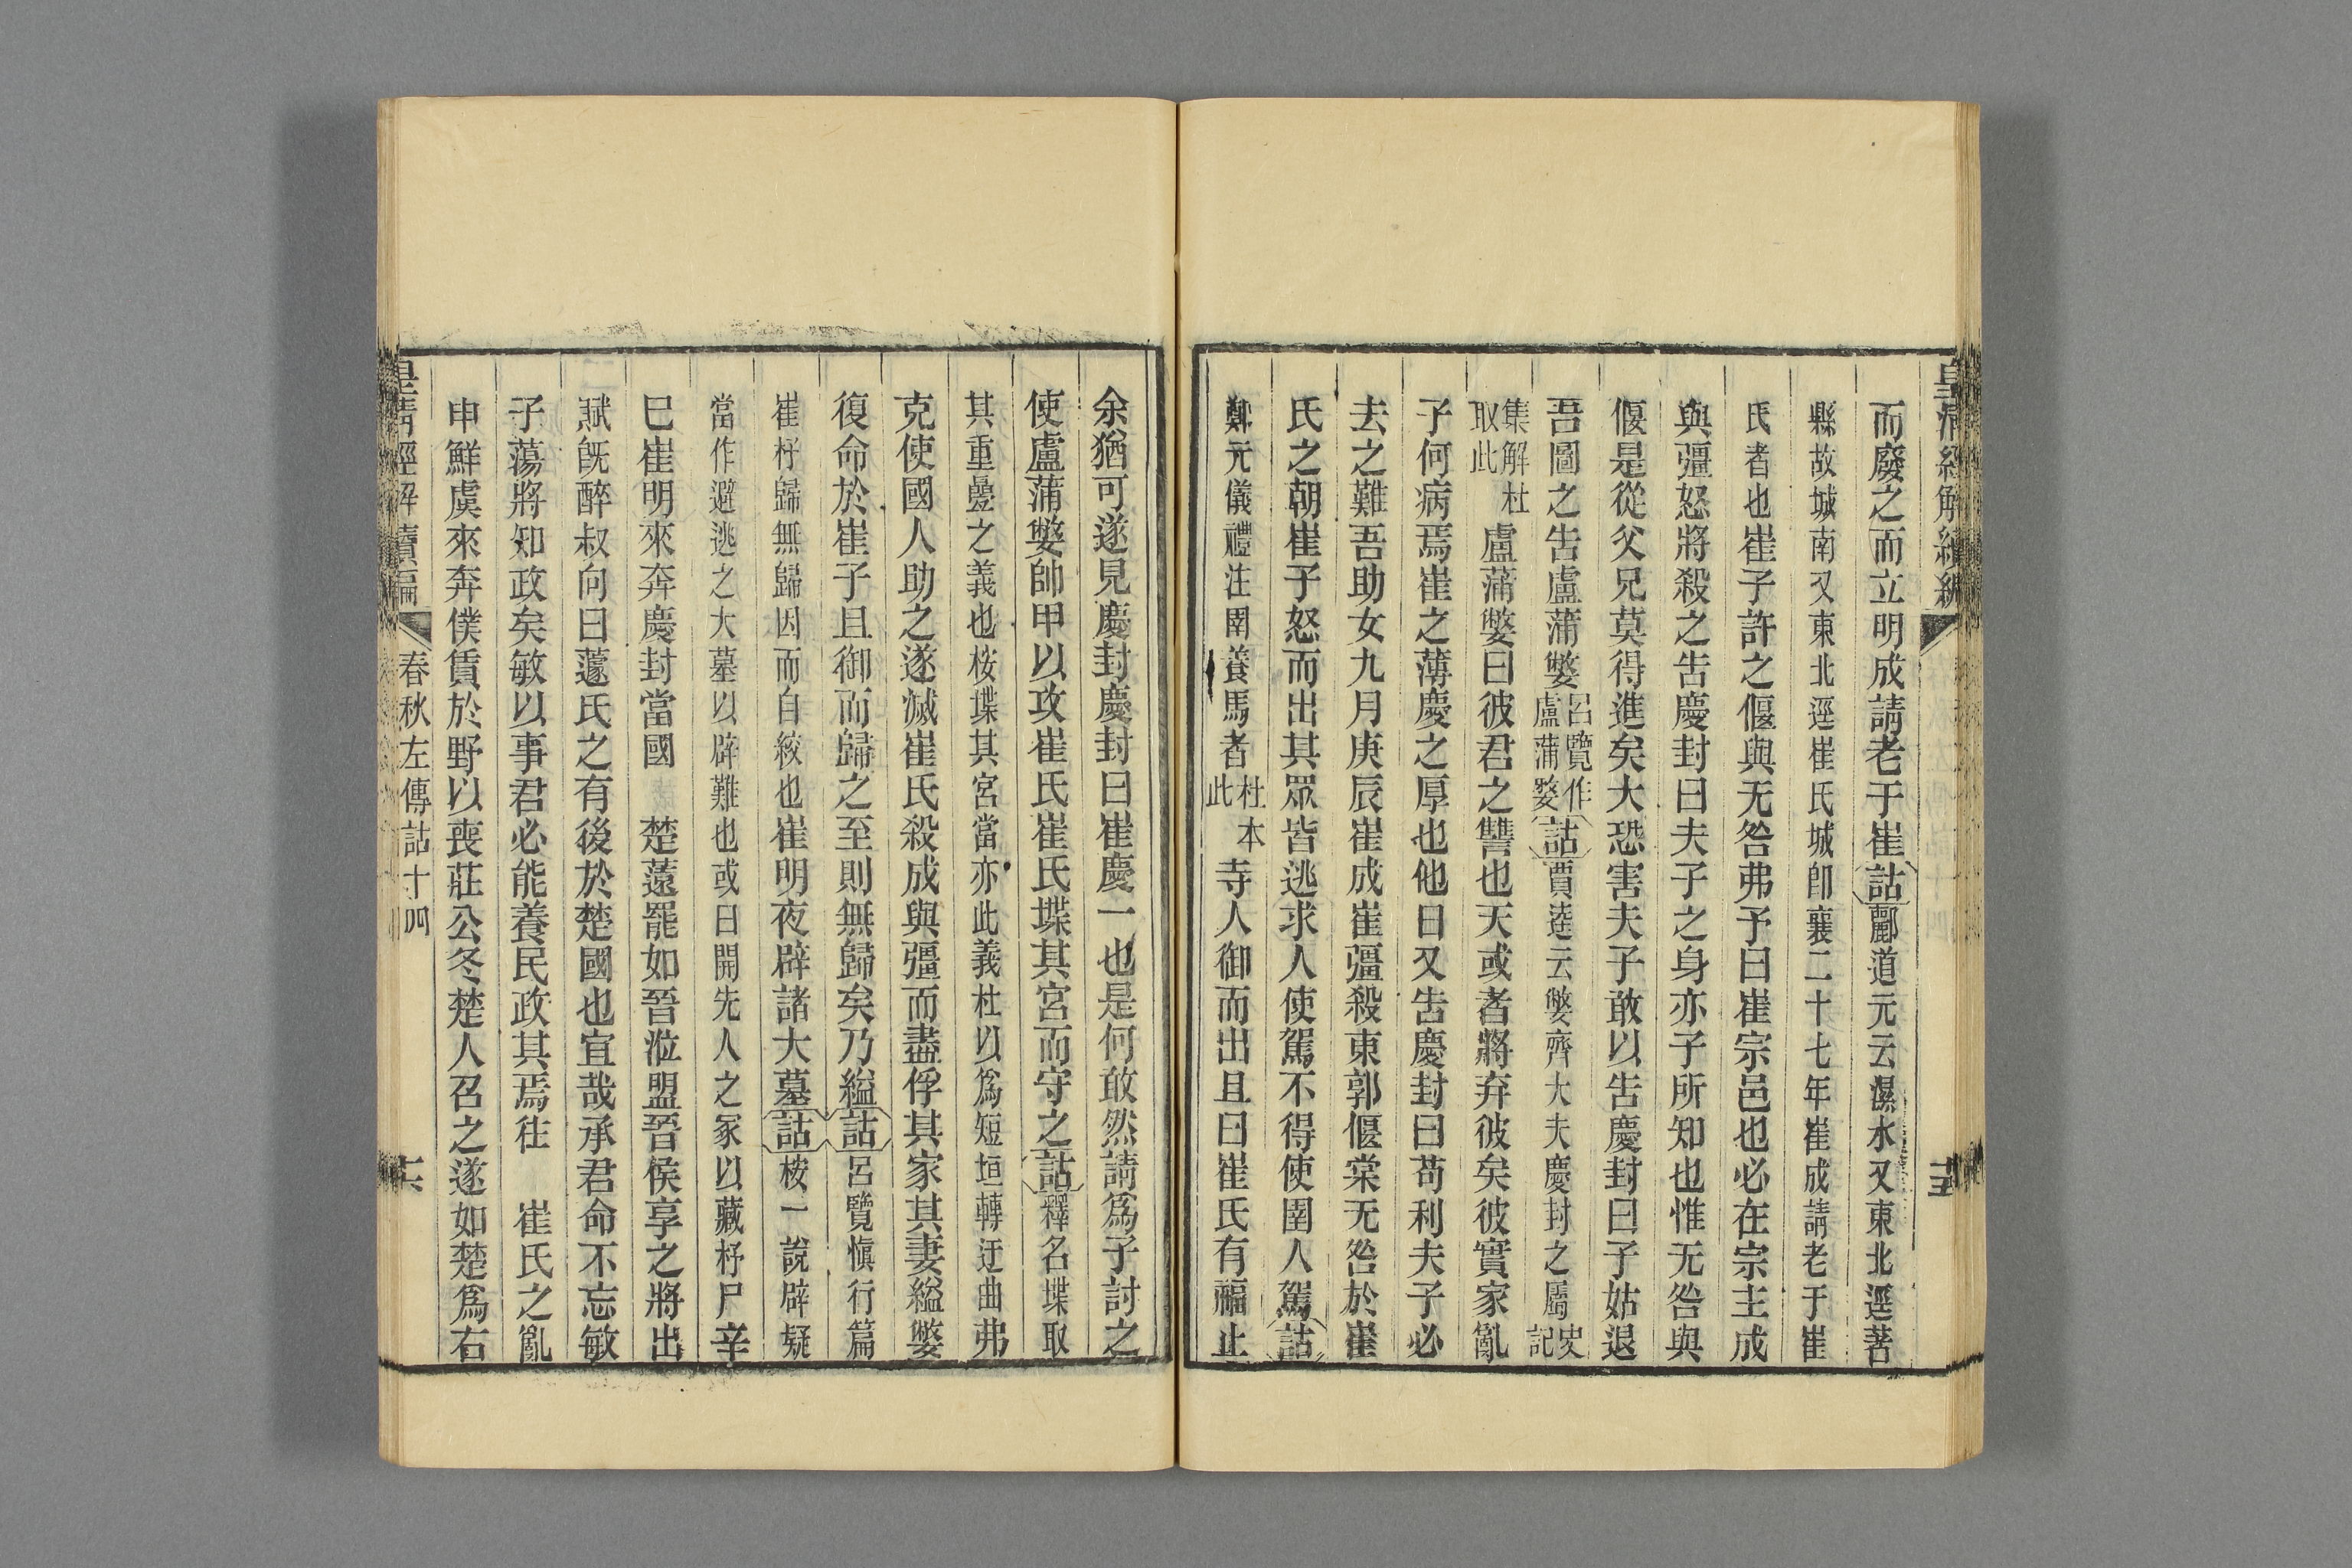 皇清經解續編
而廢之而立明成請老于崔詁酈道元云濕水又東北逕著
縣故城南又東北逕崔氏城卽襄二十七年崔成請老于崔
氏者也崔子許之偃與无咎弗予曰崔宗邑也必在宗主成
與彊怒將殺之吿慶封曰夫子之身亦子所知也惟无咎與
偃是從父兄莫得進矣大恐害夫子敢以吿慶封曰子姑退
吾圖之吿盧蒲嫳呂覽作盧蒲嫳詁賈逵云嫳齊大夫慶封之屬史記
集解杜取此盧蒲嫳曰彼君之讐也天或者將弃彼矣彼實家亂
子何病焉崔之薄慶之厚也他日又吿慶封曰苟利夫子必
去之難吾助女九月庚辰崔成崔彊殺東郭偃棠无咎於崔
氏之朝崔子怒而出其眾皆逃求人使駕不得使圉人駕詁
鄭元儀禮注圉養馬者杜本此寺人御而出且曰崔氏有福止
余猶可遂見慶封慶封曰崔慶一也是何敢然請爲子討之
使盧蒲嫳帥甲以攻崔氏崔氏堞其宮而守之詁釋名堞取
其重疊之義也桉堞其宮當亦此義杜以爲短垣轉迂曲弗
克使國人助之遂滅崔氏殺成與彊而盡俘其家其妻縊嫳
復命於崔子且御而歸之至則無歸矣乃縊詁呂覽愼行篇
崔杼歸無歸因而自絞也崔明夜辟諸大墓詁桉一說辟疑
當作避逃之大墓以辟難也或曰開先人之冢以藏杼尸辛
巳崔明來奔慶封當國　楚薳罷如晉涖盟晉侯享之將出
賦旣醉叔向曰薳氏之有後於楚國也宜哉承君命不忘敏
子蕩將知政矣敏以事君必能養民政其焉往　崔氏之亂
申鮮虞來奔僕賃於野以喪莊公冬楚人召之遂如楚爲右
皇淸經解續編　春秋左傳詁十四　十六